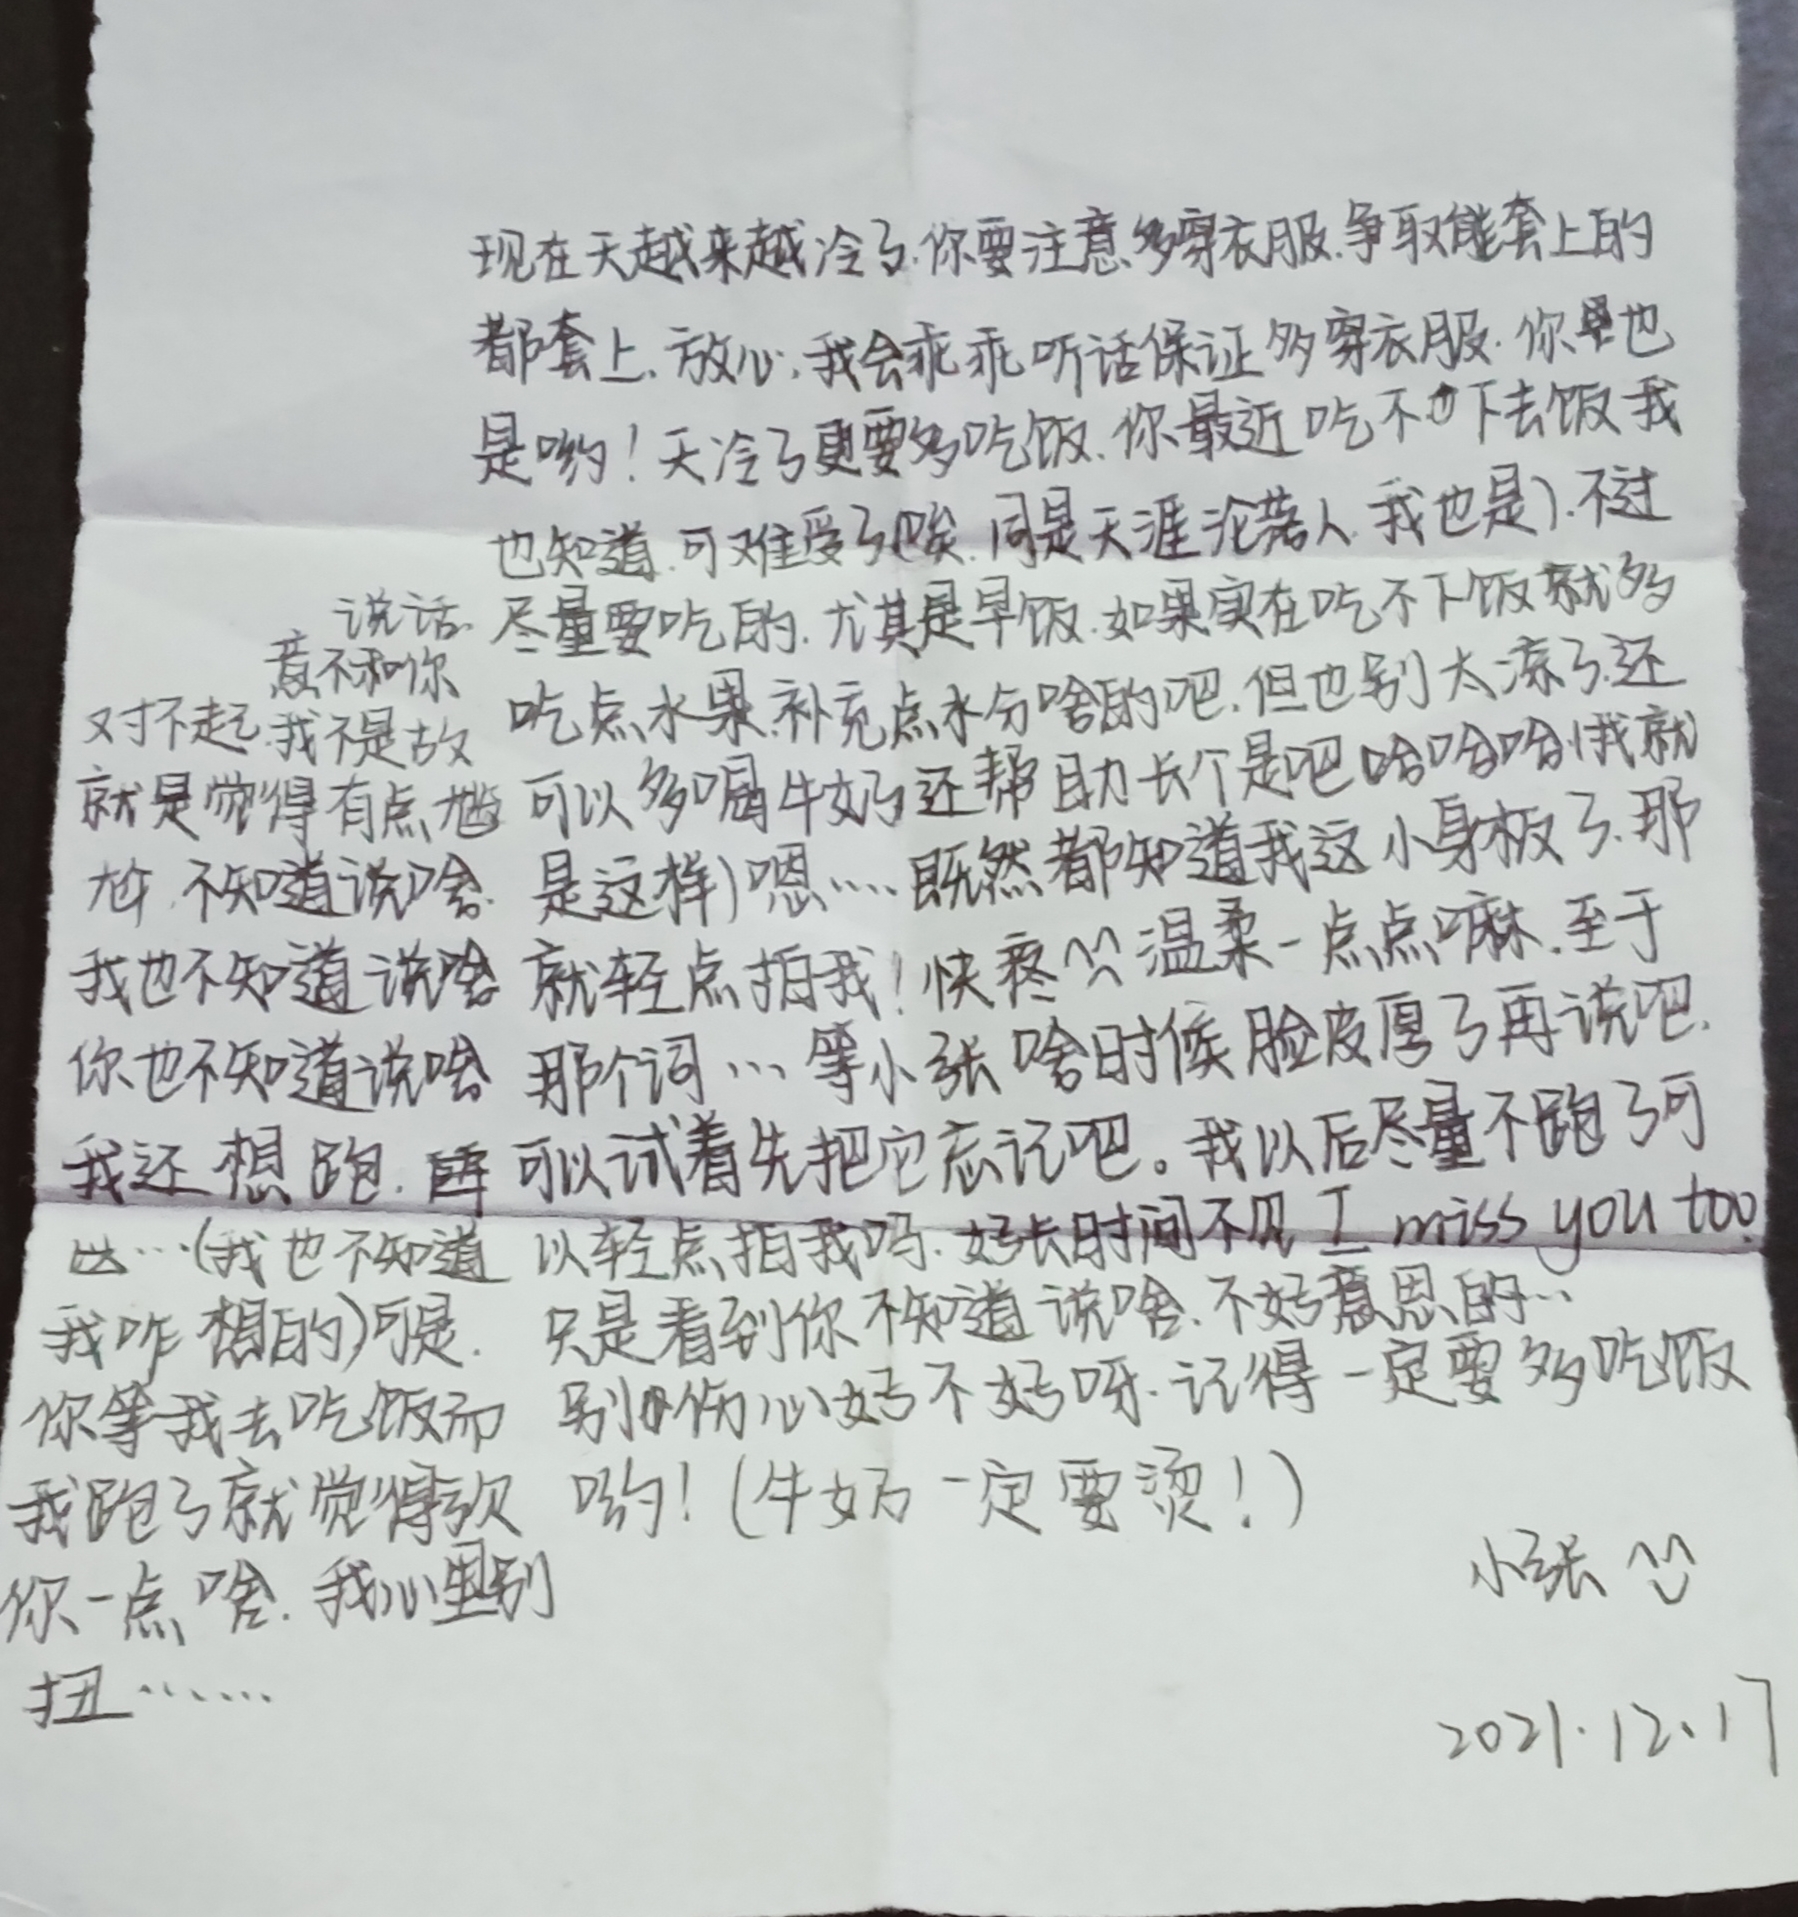 现在天越来越冷了.你要注意多穿衣服.争取能套上的
都套上.放心,我会乖乖听话保证多穿衣服.你也
是哟!天冷了更要多吃饭.你最近吃不下去饭我
也知道.可难受了(唉.同是天涯沦落人.我也是).不过
尽量要吃的.尤其是早饭.如果实在吃不下饭就多
吃点水果.补充点水分啥的吧.但也别太凉了.还
可以多喝牛奶还帮助长个是吧哈哈哈(我就
是这样)嗯……既然都知道我这小身板了.那
就轻点拍我!快疼^^温柔一点点嘛.至于
那个词…等小张啥时候脸皮厚了再说吧.
可以试着先把它忘记吧。我以后尽量不跑了可
以轻点拍我吗.好长时间不见 I miss you too.
只是看到你不知道说啥.不好意思的…
别伤心好不好呀.记得一定要多吃饭
哟!(牛奶一定要烫!)
小张 ^^
2021.12.17
说话.
意不和你
对不起.我不是故
就是觉得有点尴
尬.不知道说啥.
我也不知道说啥
你也不知道说啥
我还想跑.
…(我也不知道
我咋想的)可是.
你等我去吃饭而
我跑了就觉得欠
你一点啥.我心里别
扭……